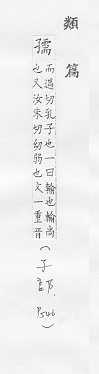 類篇
孺
而遇切乳子也一曰輸也輸尚
也又汝朱切幼弱也文一重音
(子部, P546)